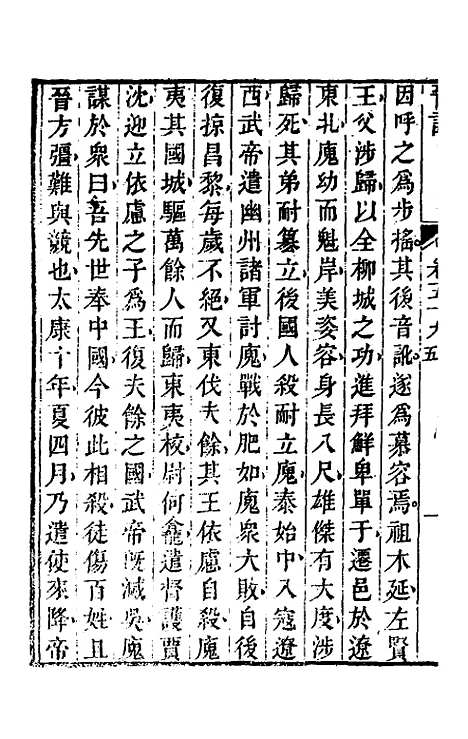 因呼之為步搖其後音訛遂為慕容焉祖木延左賢
王父涉歸以全柳城之功進拜鮮卑單于遷邑於遼
東北廆幼而魁岸美姿容身長八尺雄傑有大度涉
歸死其弟耐篡立後國人殺耐立廆泰始中入寇遼
西武帝遣幽州諸軍討廆戰於肥如廆衆大敗自後
復掠昌黎每歲不絕又東伐夫餘其王依慮自殺廆
夷其國城驅萬餘人而歸東夷校尉何龕遣督護賈
沈迎立依慮之子為王復夫餘之國武帝旣滅吳廆
謀於衆曰吾先世奉中國今彼此相殺徒傷百姓且
晉方彊難與競也太康十年夏四月乃遣使來降帝